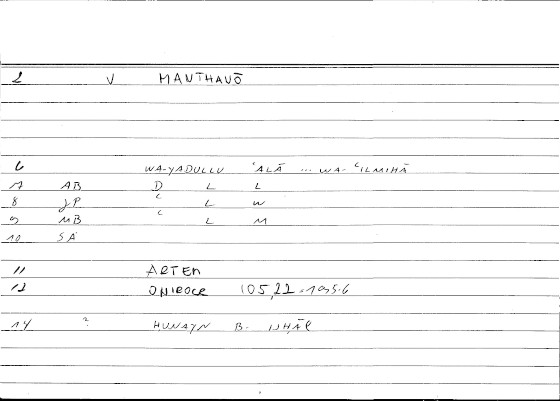 2 V MANTHANŌ
6 WA-YADULLU ʿALĀ ... WA-ʿILMIHĀ
7 AB D L L
8 JP ʿ L W
9 MB ʿ L M
10 SA
11 ARTEM
12 ONIROCR 105,22 - 105.6
14 ? ḤUNAYN B. ISḤĀQ